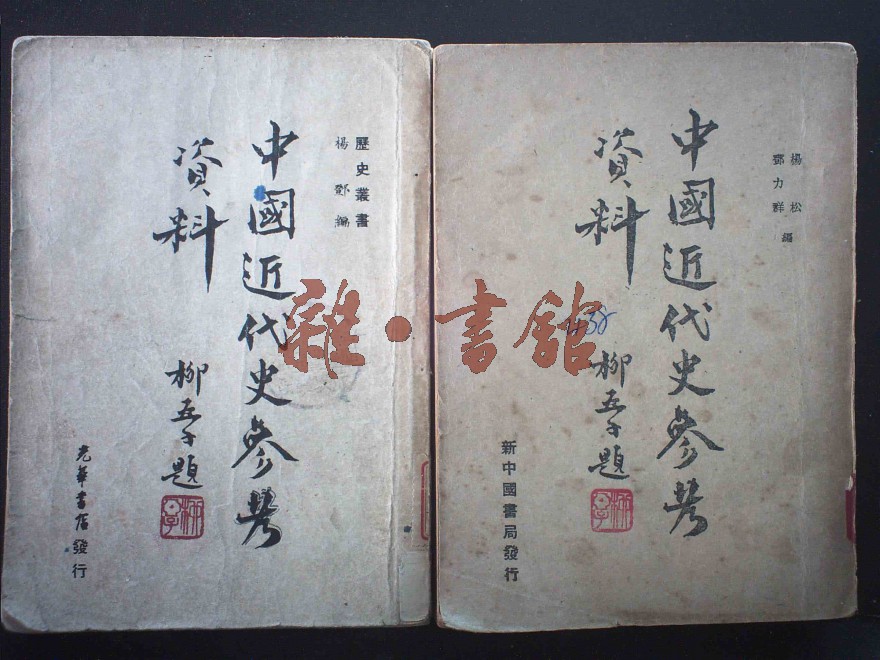 歷史叢書
楊鄧編
中國近代史參考
資料
柳亞子題
光華書店發行
楊松
鄧力群編
中國近代史參考
資料
438
柳亞子題
新中國書局發行
雜·書館